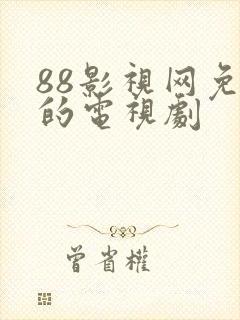 88影視网免
的電視劇
曾省權